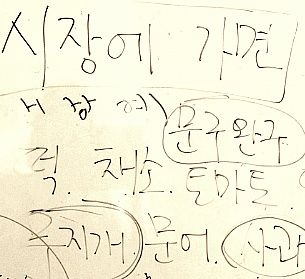 시장에 가면
시장에 문구완구
떡. 채소. 토마토.
무지개 문어. 사과